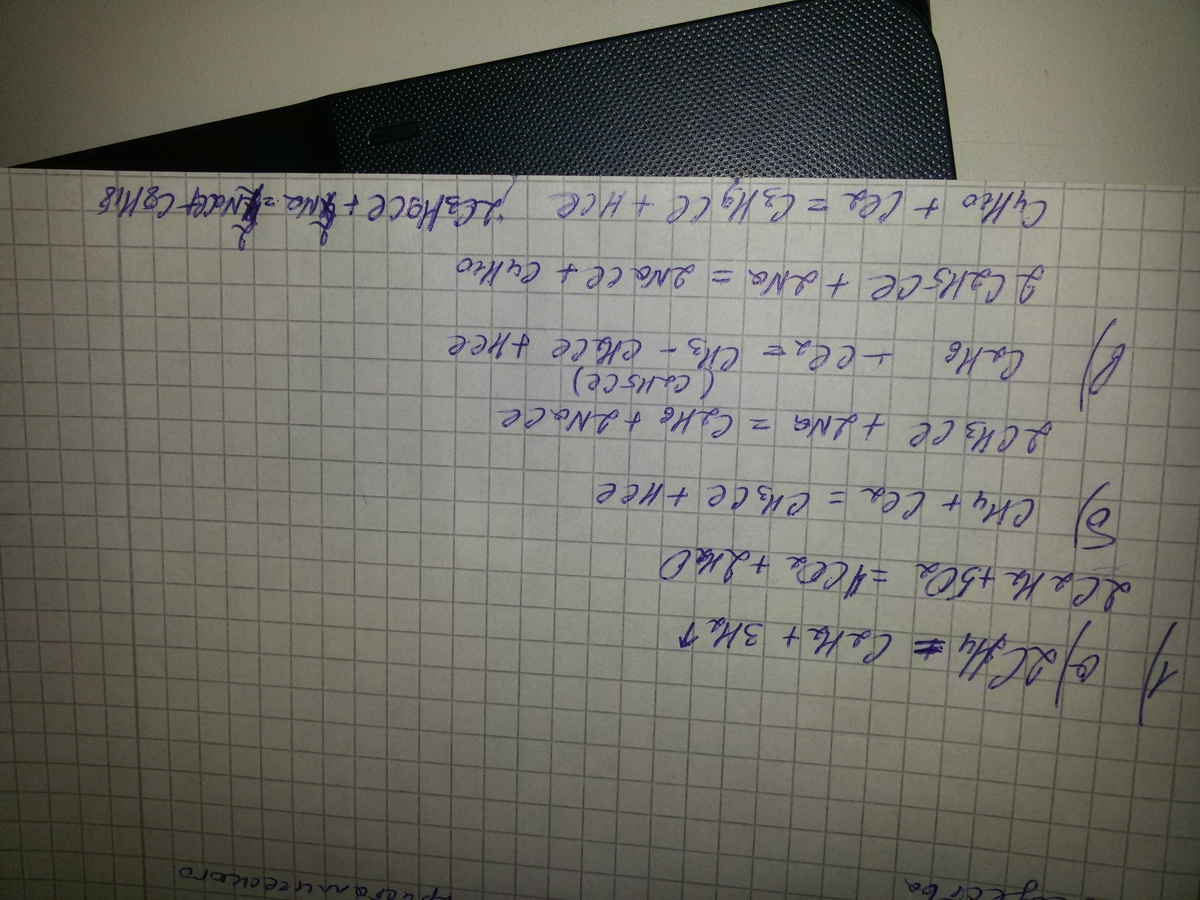 1) а) 2CH4 = C2H2 + 3H2↑
2C2H2 + 5O2 = 4CO2 + 2H2O
б) CH4 + Cl2 = CH3Cl + HCl
2CH3Cl + 2Na = C2H6 + 2NaCl
в) C2H6 + Cl2 = CH3 - CH2Cl + HCl
(C2H5Cl)
2C2H5Cl + 2Na = 2NaCl + C4H10
C4H10 + Cl2 = C3H9Cl + HCl ; 2C3H9Cl + 2Na = 2NaCl + C8H18